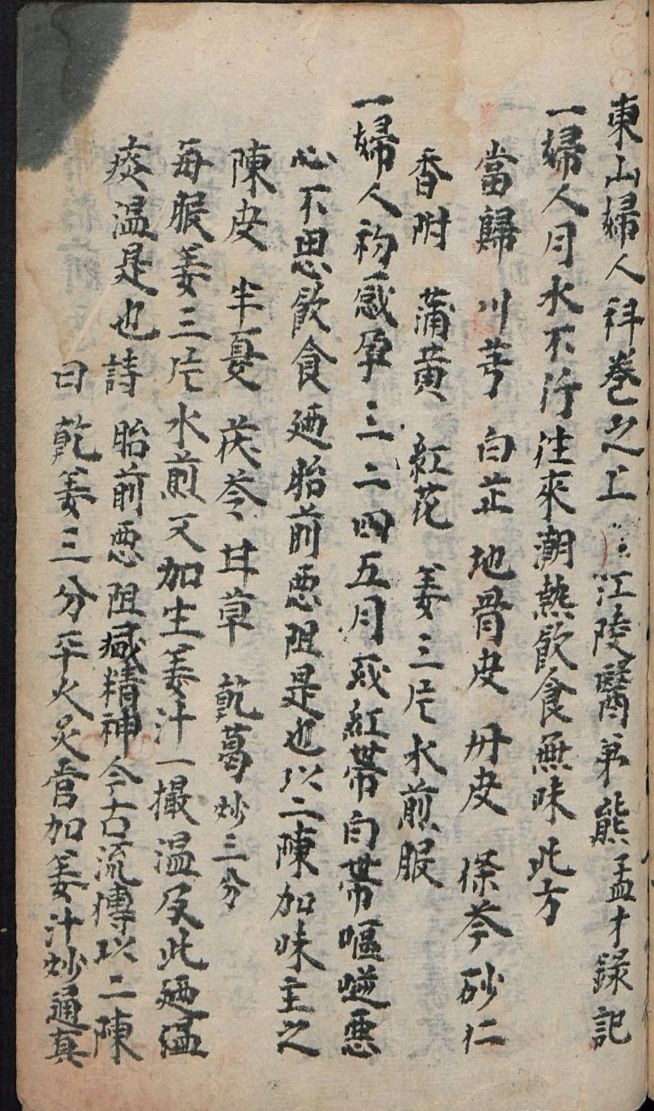 東山婦人科卷之上 江陵醫弟熊孟才錄記
一婦人月水不行往來潮熱飲食無味此方
當歸 川芎 白芷 地骨皮 丹皮 條苓 砂仁
香附 蒲黃 紅花 姜三片水煎服
一婦人初感孕三二四五月或紅帶白帶嘔逆惡
心不思飲食廼胎前惡阻是也以二陳加味主之
陳皮 半夏 茯苓 甘草 乾葛炒三分
每服姜三片水煎又加生姜汁一撮溫及此廼溫
痰温是也詩 胎前惡阻減精神今古流傳以二陳
曰 乾姜三分平火炙嘗加姜汁炒通真